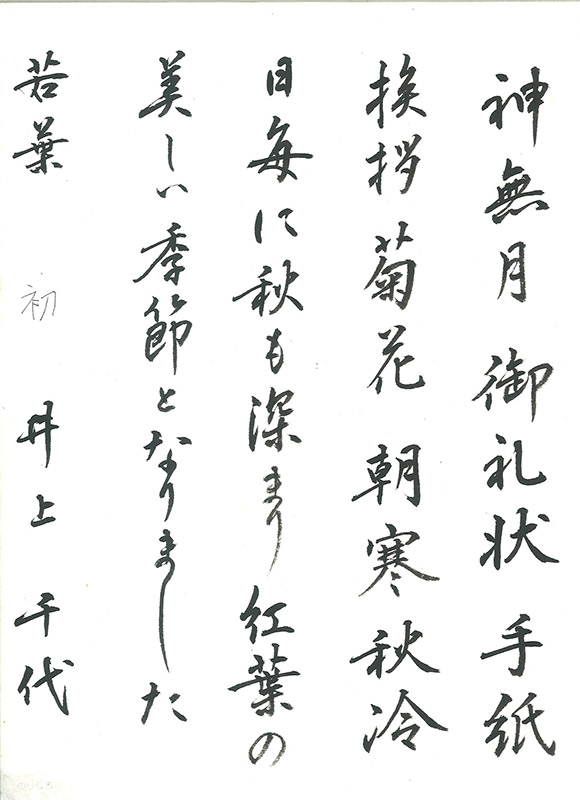 神無月 御礼状 手紙
挨拶 菊花 朝寒 秋冷
日毎に秋も深まり 紅葉の
美しい季節となりました
若葉 初 井上 千代